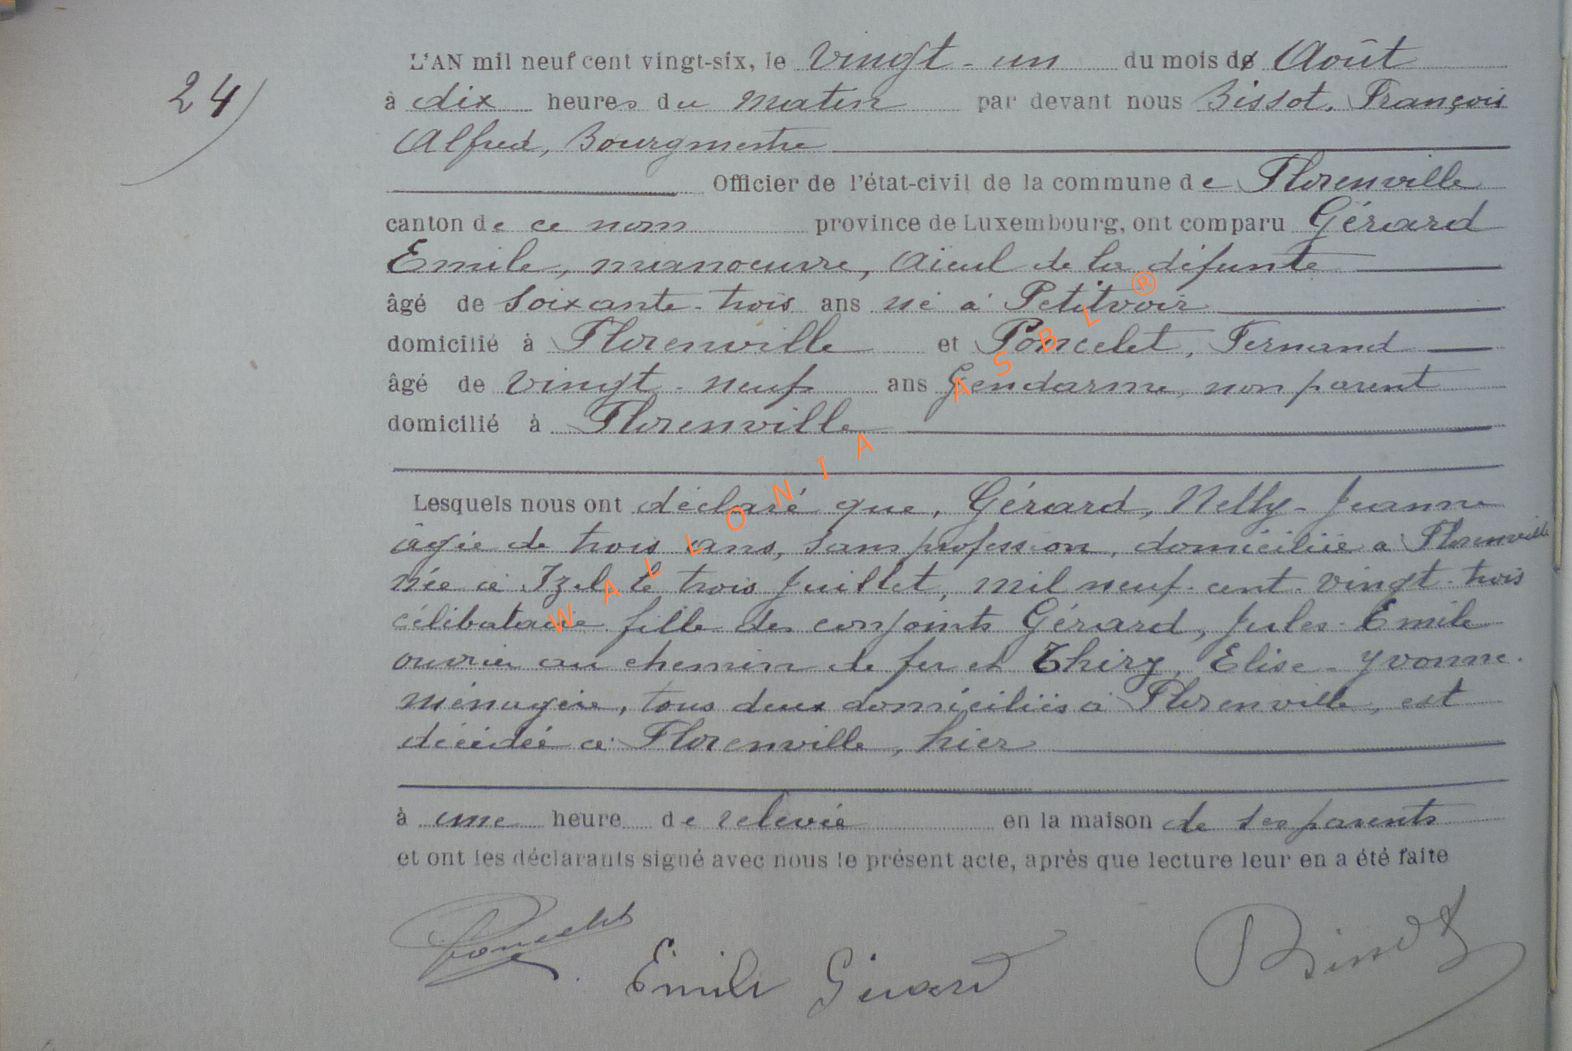 24)
L'AN mil neuf cent vingt-six, le vingt-un du mois de Août
à dix heures du matin par devant nous Bissot, François
Alfred, Bourgmestre
Officier de l'état-civil de la commune de Florenville
canton de ce nom province de Luxembourg, ont comparu Gérard
Emile, manoeuvre, aieul de la défunte
âgé de soixante-trois ans né à Petitvoir
domicilié à Florenville et Poncelet, Fernand
âgé de vingt-neuf ans Gendarme, non parent
domicilié à Florenville
Lesquels nous ont déclaré que, Gérard, Nelly-Jeanne
âgée de trois ans, sans profession, domiciliée à Florenville
née à Izel le trois Juillet, mil neuf-cent-vingt-trois
célibataire fille des conjoints Gérard, Jules-Emile
ouvrier au chemin de fer et Thiry, Elise-Yvonne.
ménagère, tous deux domiciliés à Florenville, est
décédée à Florenville, hier
à une heure de relevée en la maison de ses parents
et ont les déclarants signé avec nous le présent acte, après que lecture leur en a été faite
Poncelet Emile Gérard Bissot
WALLONIA ASBL ®